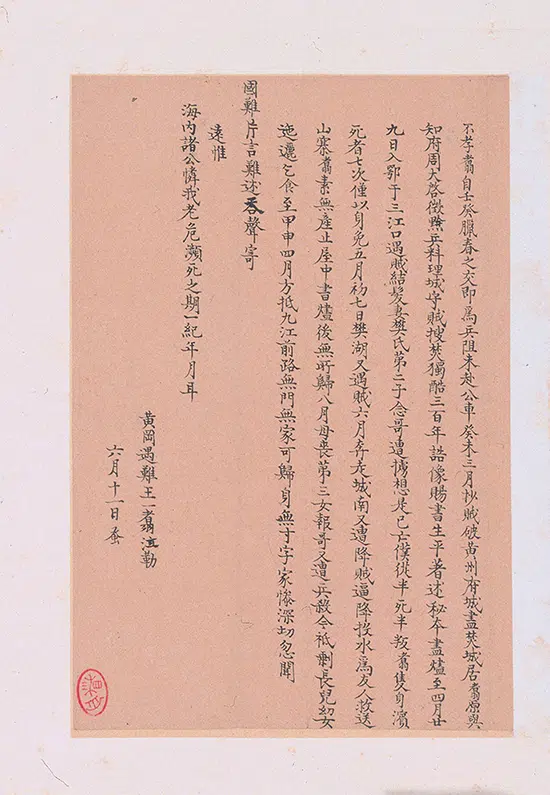 不孝翥自壬癸臘春之交即為兵阻未赴公車癸未三月抄賊破黃州府城盡焚城居翥原與
知府周大啓徵點兵料理城守賊搜焚獨酷三百年誥像賜書生平著述秘本盡燼至四月廿
九日入鄂于三江口遇賊結髮妻樊氏第二子念哥遭擄想是已亡僕從半死半叛翥隻身濵
死者七次僅以身免五月初七日樊湖又遇賊六月奔走城南又遭降賊逼降投水為友人救送
山寨翥素無產止屋中書燼後無所歸八月母喪第三女報哥又遭兵殺今祗剩長兒幼女
迤邐乞食至甲申四月方抵九江前路無門無家可歸身無寸字家慘深切忽聞
國難片言難述吞聲寄
遠惟
海內諸公憐我老危瀕死之期一紀年月耳
黃岡遇難王一翥泣勒
六月十一日